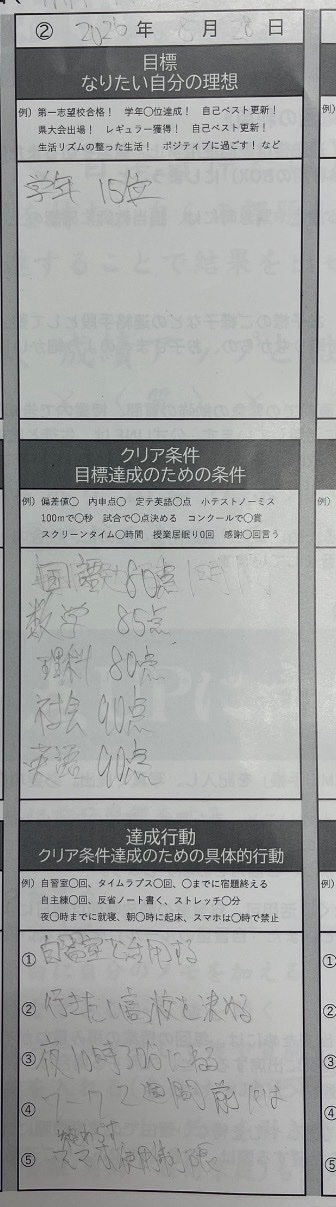 ② 2026年 月 28日
目標
なりたい自分の理想
例）第一志望校合格！　学年〇位達成！　自己ベスト更新！
県大会出場！　レギュラー獲得！　自己ベスト更新！
生活リズムの整った生活！　ポジティブに過ごす！ など
学年 15位
クリア条件
目標達成のための条件
例）偏差値〇　内申点〇　定テ英語〇点　小テストノーミス
100mで〇秒　試合で〇点決める　コンクールで〇賞
スクリーンタイム〇時間　授業居眠り0回　感謝〇回言う
国語 80点
数学 85点
理科 80点
社会 90点
英語 90点
達成行動
クリア条件達成のための具体的行動
例）自習室〇回、タイムラプス〇回、〇までに宿題終える
自主練〇回、反省ノート書く、ストレッチ〇分
夜〇時までに就寝、朝〇時に起床、スマホは〇時で禁止
① 自習室を利用する
② 行きたい高校を決める
③ 夜10時30分に寝る
④ ワーク2週間前には
終わらす
⑤ スマホ使用制限